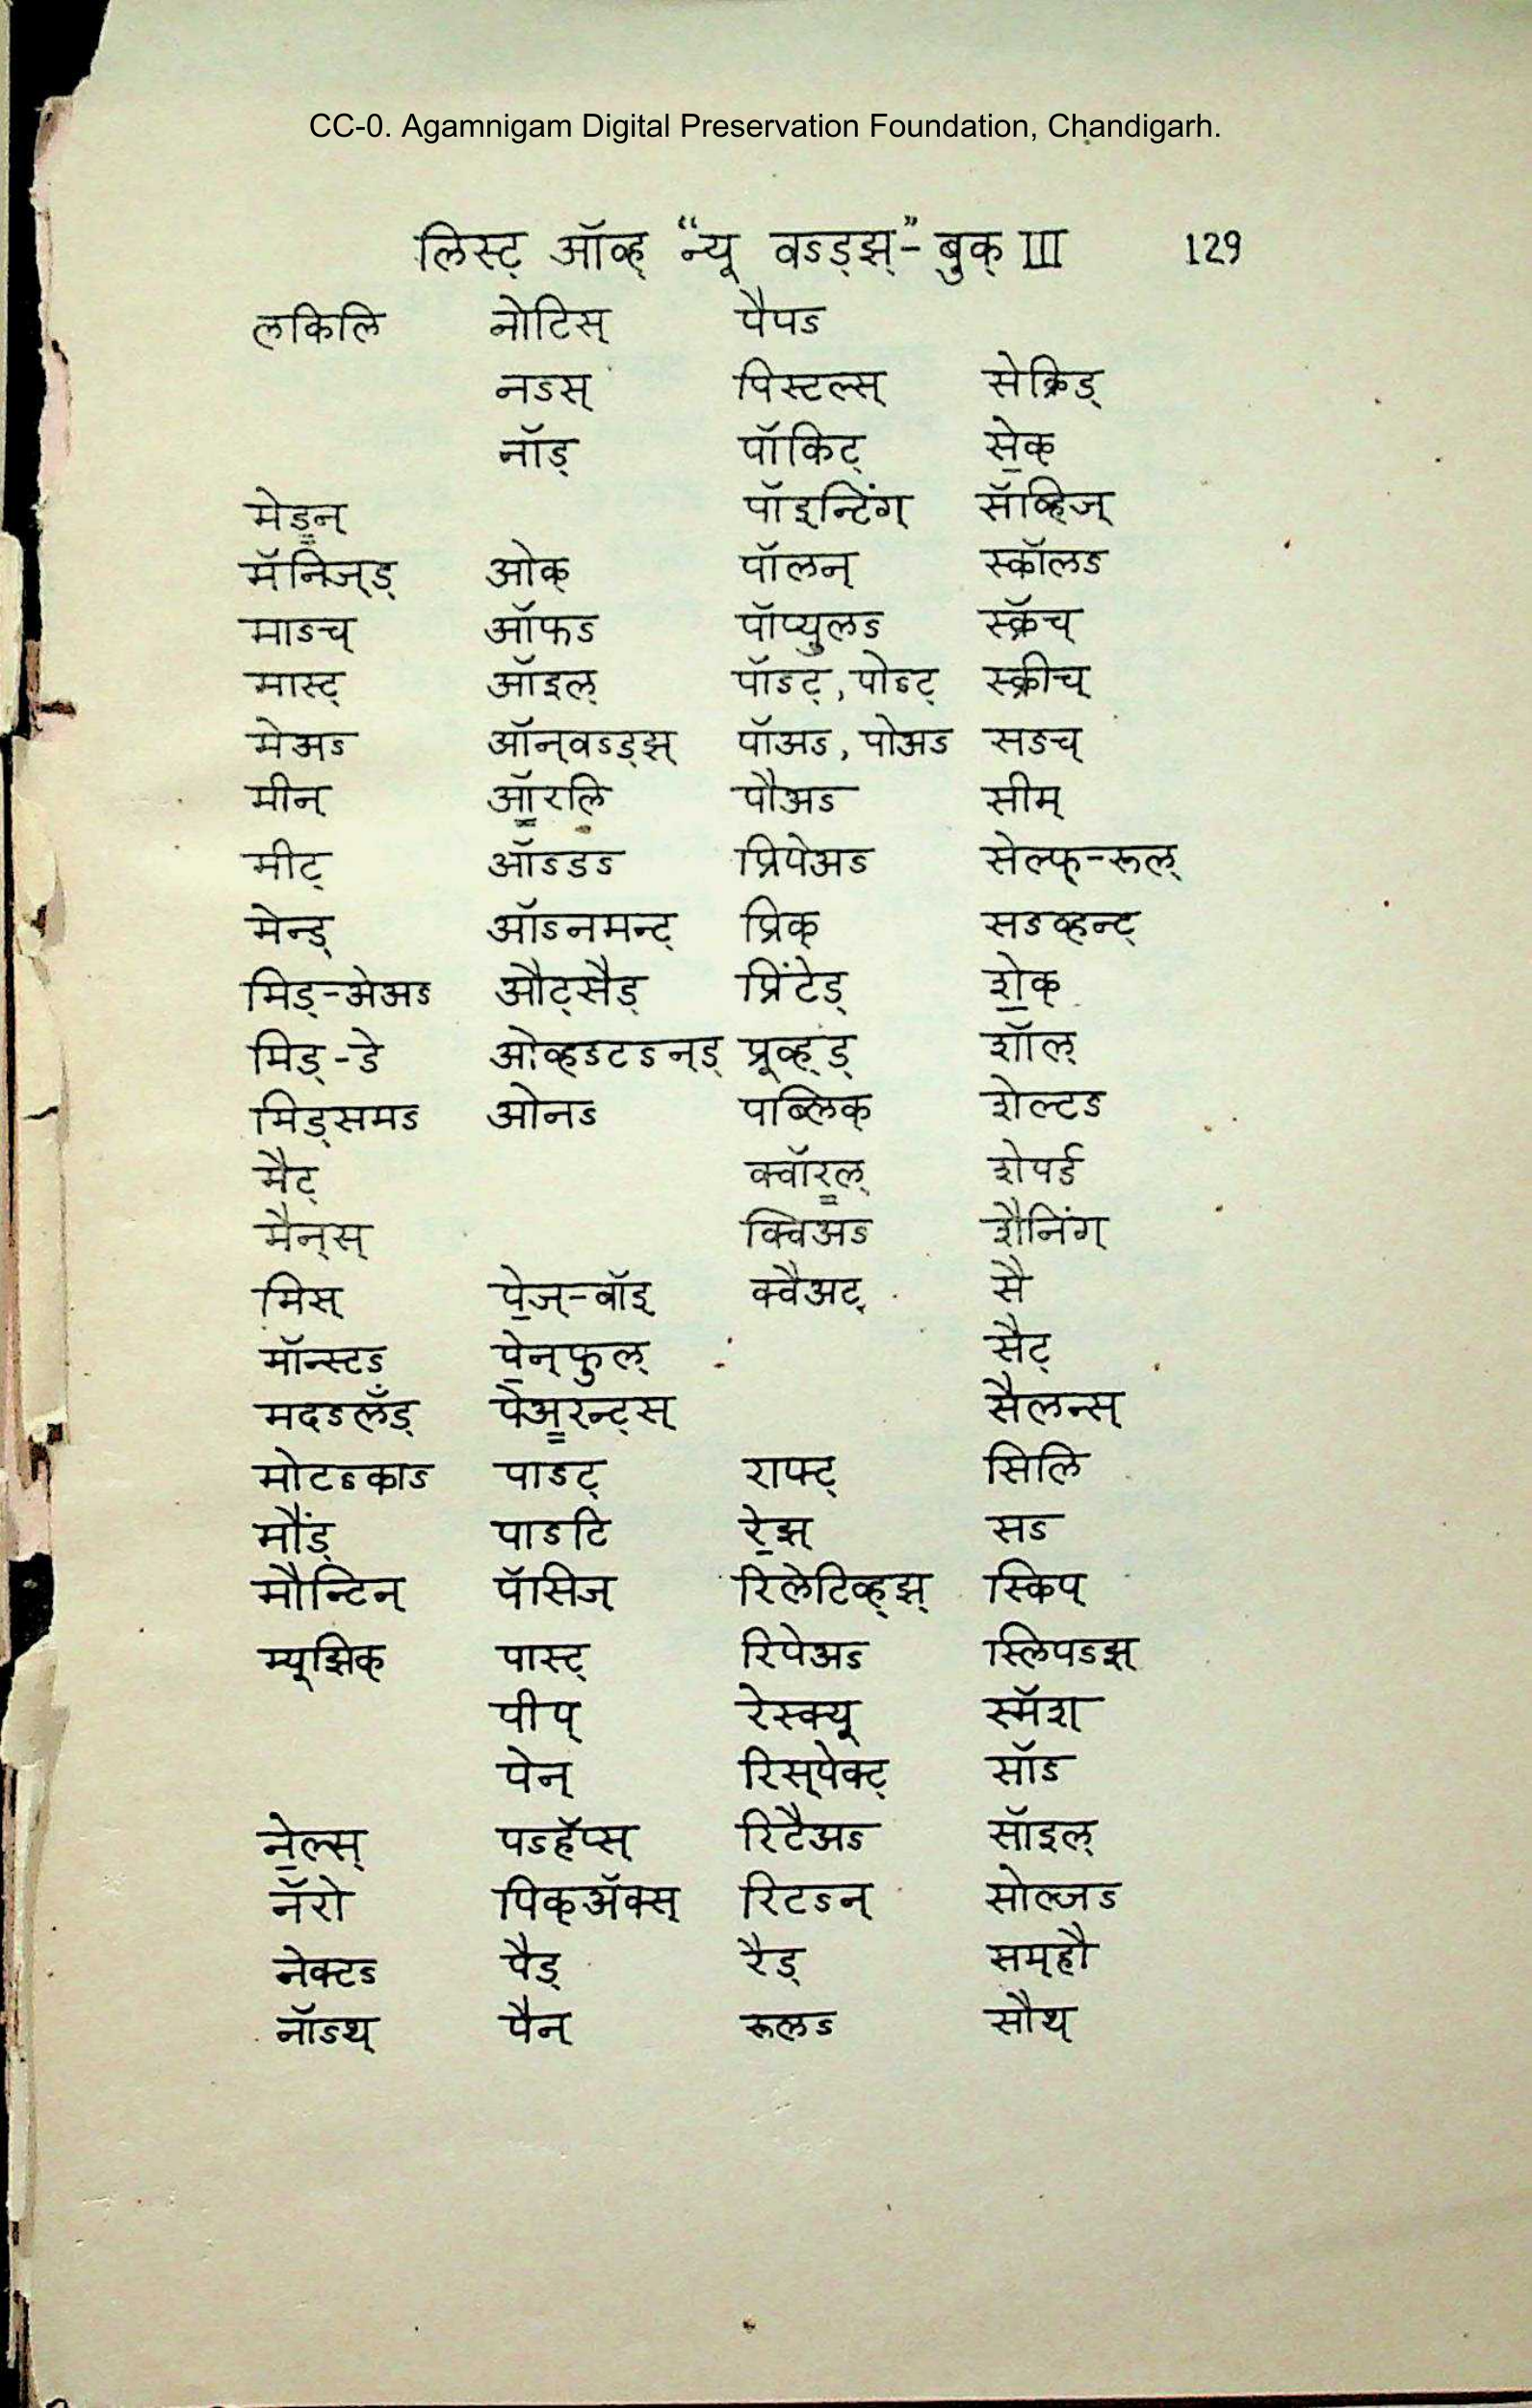 CC-0. Agamnigam Digital Preservation Foundation, Chandigarh.
लिस्ट् ऑव्ह् “न्यू वऽड्झ्”- बुक् III 129
लकिलि नोटिस् पैपऽ
नऽस् पिस्टल्स् सेक्रिड्
नॉड् पॉकिट् से॒क्
मेड॒न् पॉइन्टिंग् सॅव्हिज्
मॅनिज्ड् ओक् पॉलन् स्कॉलऽ
माऽच् ऑफऽ पॉप्युलऽ स्क्रॅच्
मास्ट् ऑइल् पॉऽट्, पोऽट् स्क्रीच्
मेअऽ ऑन्वऽड्झ् पॉअऽ, पोअऽ सऽच्
मीन् ऑ॒रलि पौअऽ सीम्
मीट् ऑऽडऽ प्रिपेअऽ सेल्फ्-रूल्
मेन्ड् ऑऽनमन्ट् प्रिक् सऽव्हन्ट्
मिड्-अेअऽ औट्सैड् प्रिंटेड् शे॒क्
मिड्-डे ओव्हऽटऽन्ड् प्रूव्ह्ड् शॉल्
मिड्समऽ ओनऽ पब्लिक् शेल्टऽ
मैट् क्वॉर॒ल् शेपर्ड
मैन्स् क्विअऽ शैनिंग्
मिस् पे॒ज्-बॉइ क्वैअट् सै
मॉन्स्टऽ पे॒न्फुल् सैट्
मदऽलँड् पेअ॒रन्ट्स् सैलन्स्
मोटऽकाऽ पाऽट् राफ्ट् सिलि
मौंड् पाऽटि रे॒झ् सऽ
मौन्टिन् पॅसिज् रिलेटिव्ह्झ् स्किप्
म्यूझिक् पास्ट् रिपेअऽ स्लिपऽझ्
पीप् रेस्क्यू स्मॅश
पेन् रिस्पेक्ट् सॉऽ
ने॒ल्स् पऽहॅप्स् रिटैअऽ सॉइल्
नॅरो पिक्अ‍ॅक्स् रिटऽन् सोल्जऽ
नेक्टऽ पैड् रैड् सम्हौ
नॉऽथ् पैन रूलऽ सौथ्